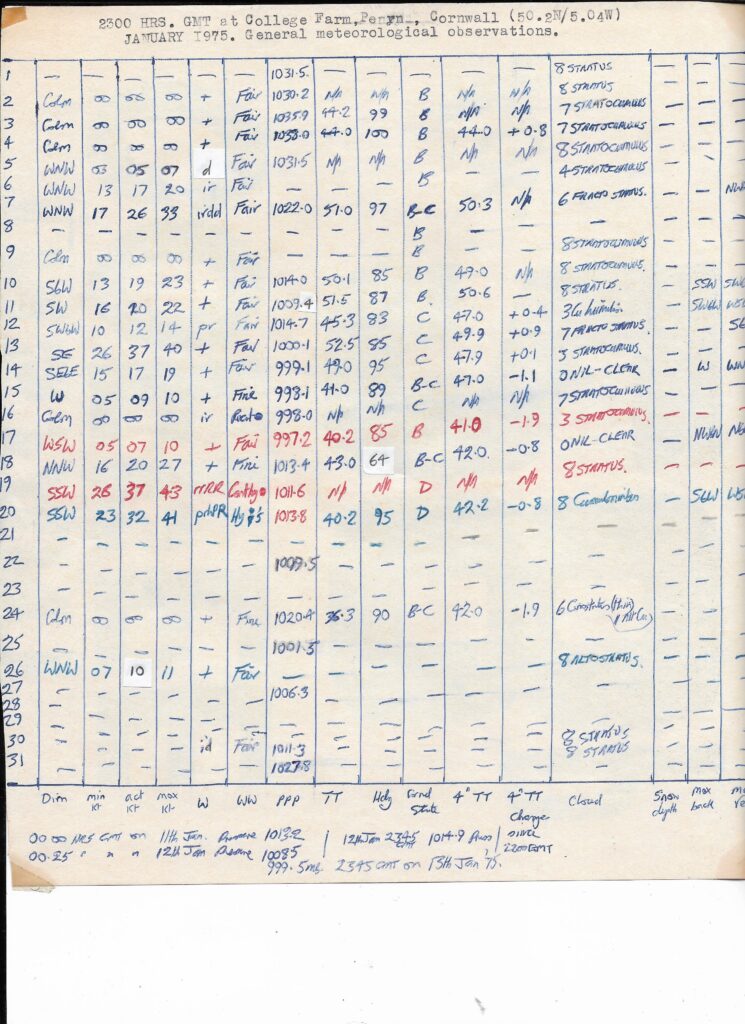 2300 HRS. GMT at College Farm, Penryn, Cornwall (50.2N/5.04W)
JANUARY 1975. General meteorological observations.
1 — — — — — — 1031.5 — — — — — 8 STRATUS — — —
2 Calm 00 00 00 + Fair 1030.2 N/A N/A B N/A N/A 8 STRATUS
3 Calm 00 00 00 + Fair 1035.9 44.2 99 B N/A N/A 7 STRATOCUMULUS
4 Calm 00 00 00 + Fair 1033.0 44.0 100 B 44.0 +0.8 7 STRATOCUMULUS
5 WNW 03 05 07 d Fair 1031.5 N/A N/A B N/A N/A 8 STRATOCUMULUS
6 WNW 13 17 20 ir Fair — — — B — — 4 STRATOCUMULUS
7 WNW 17 26 33 irdd Fair 1022.0 51.0 97 B-C 50.3 N/A 6 FRACTO STATUS.
8 — — — — — — — — B — —
9 Calm 00 00 00 + Fair — — — B — — 8 STRATOCUMULUS
10 SSW 13 19 23 + Fair 1014.0 50.1 85 B 49.0 N/A 8 STRATOCUMULUS.
11 SW 16 20 22 + Fair 1009.4 51.5 87 B 50.6 — 8 STRATUS. — SSW
12 SWBW 10 12 14 pr Fair 1014.7 45.3 83 C 47.0 +0.4 3 Cu humilis —
13 SE 26 37 40 + Fair 1000.1 52.5 85 C 49.9 +0.9 7 FRACTO STATUS. —
14 SEBE 15 17 19 + Fair 999.1 49.0 95 C 47.9 +0.1 3 STRATOCUMULUS.
15 W 05 09 10 + Fine 993.1 41.0 89 B-C 47.0 -1.1 0 NIL-CLEAR — W
16 Calm 00 00 00 ir 998.0 N/A N/A C N/A N/A 7 STRATOCUMULUS —
17 WSW 05 07 10 + Fair 997.2 40.2 85 B 41.0 -1.9 3 STRATOCUMULUS — —
18 NNW 16 20 27 + Fine 1013.4 43.0 64 B-C 42.0 -0.8 0 NIL-CLEAR —
19 SSW 26 37 43 rrRR 1011.6 N/A N/A D N/A N/A 8 STRATUS. — —
20 SSW 23 32 41 1013.8 40.2 95 D 42.2 -0.8 8 Cumulonimbus —
21 — — — — — — — — — — — — — —
22 — — — — — — 1007.5 — — — — — — —
23 — — — — — — — — — — — — — —
24 Calm 00 00 00 + Fine 1020.4 36.3 90 B-C 42.0 -1.9 6 Cirrostratus (thin) — —
25 — — — — — — 1001.3 — — — — — — —
26 WNW 07 10 11 + Fair — — — — — — 8 ALTOSTRATUS. — —
27 — — — — — — 1006.3 — — — — — — —
28 — — — — — — — — — — — — — —
29 — — — — — — — — — — — — — —
30 — — — — id Fair 1011.3 — — — — — 8 STRATUS — —
31 — — — — — — 1027.8 — — — — — 8 STRATUS — —
Dirn min kt act kt max kt W WW PPP TT Hdy Grnd State 4" TT 4" TT Change since 2200 GMT Cloud Snow depth max back
00 00 HRS GMT on 11th Jan. Pressure 1013.2 | 12th Jan 2345 GMT 1014.9
00.25 " " " 12th Jan Pressure 1008.5
999.5mb. 2345 GMT on 13th Jan, 75.